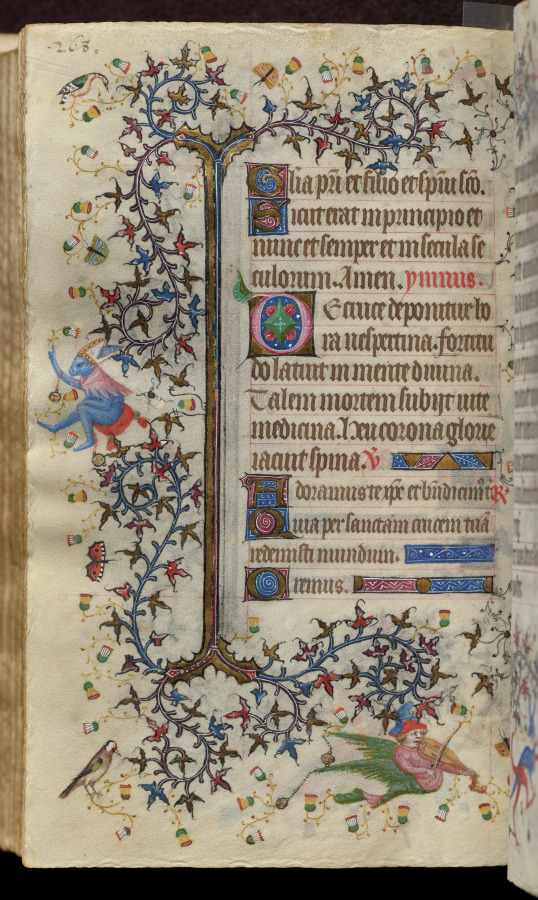 268.
Glia pri et filio et spiui sco.
Sicut erat in principio et
nunc et semper et in secula se
culorum. Amen. ymnus.
De cruce deponitur ho
ra uespertina. fortitu
do latuit in mente diuina.
Talem mortem subijt uite
medicina. Heu corona glorie
iacuit spina. V
Adoramus te xpe et bndicim9 t R
Quia per sanctam crucem tuā
redemisti mundum.
Oremus.